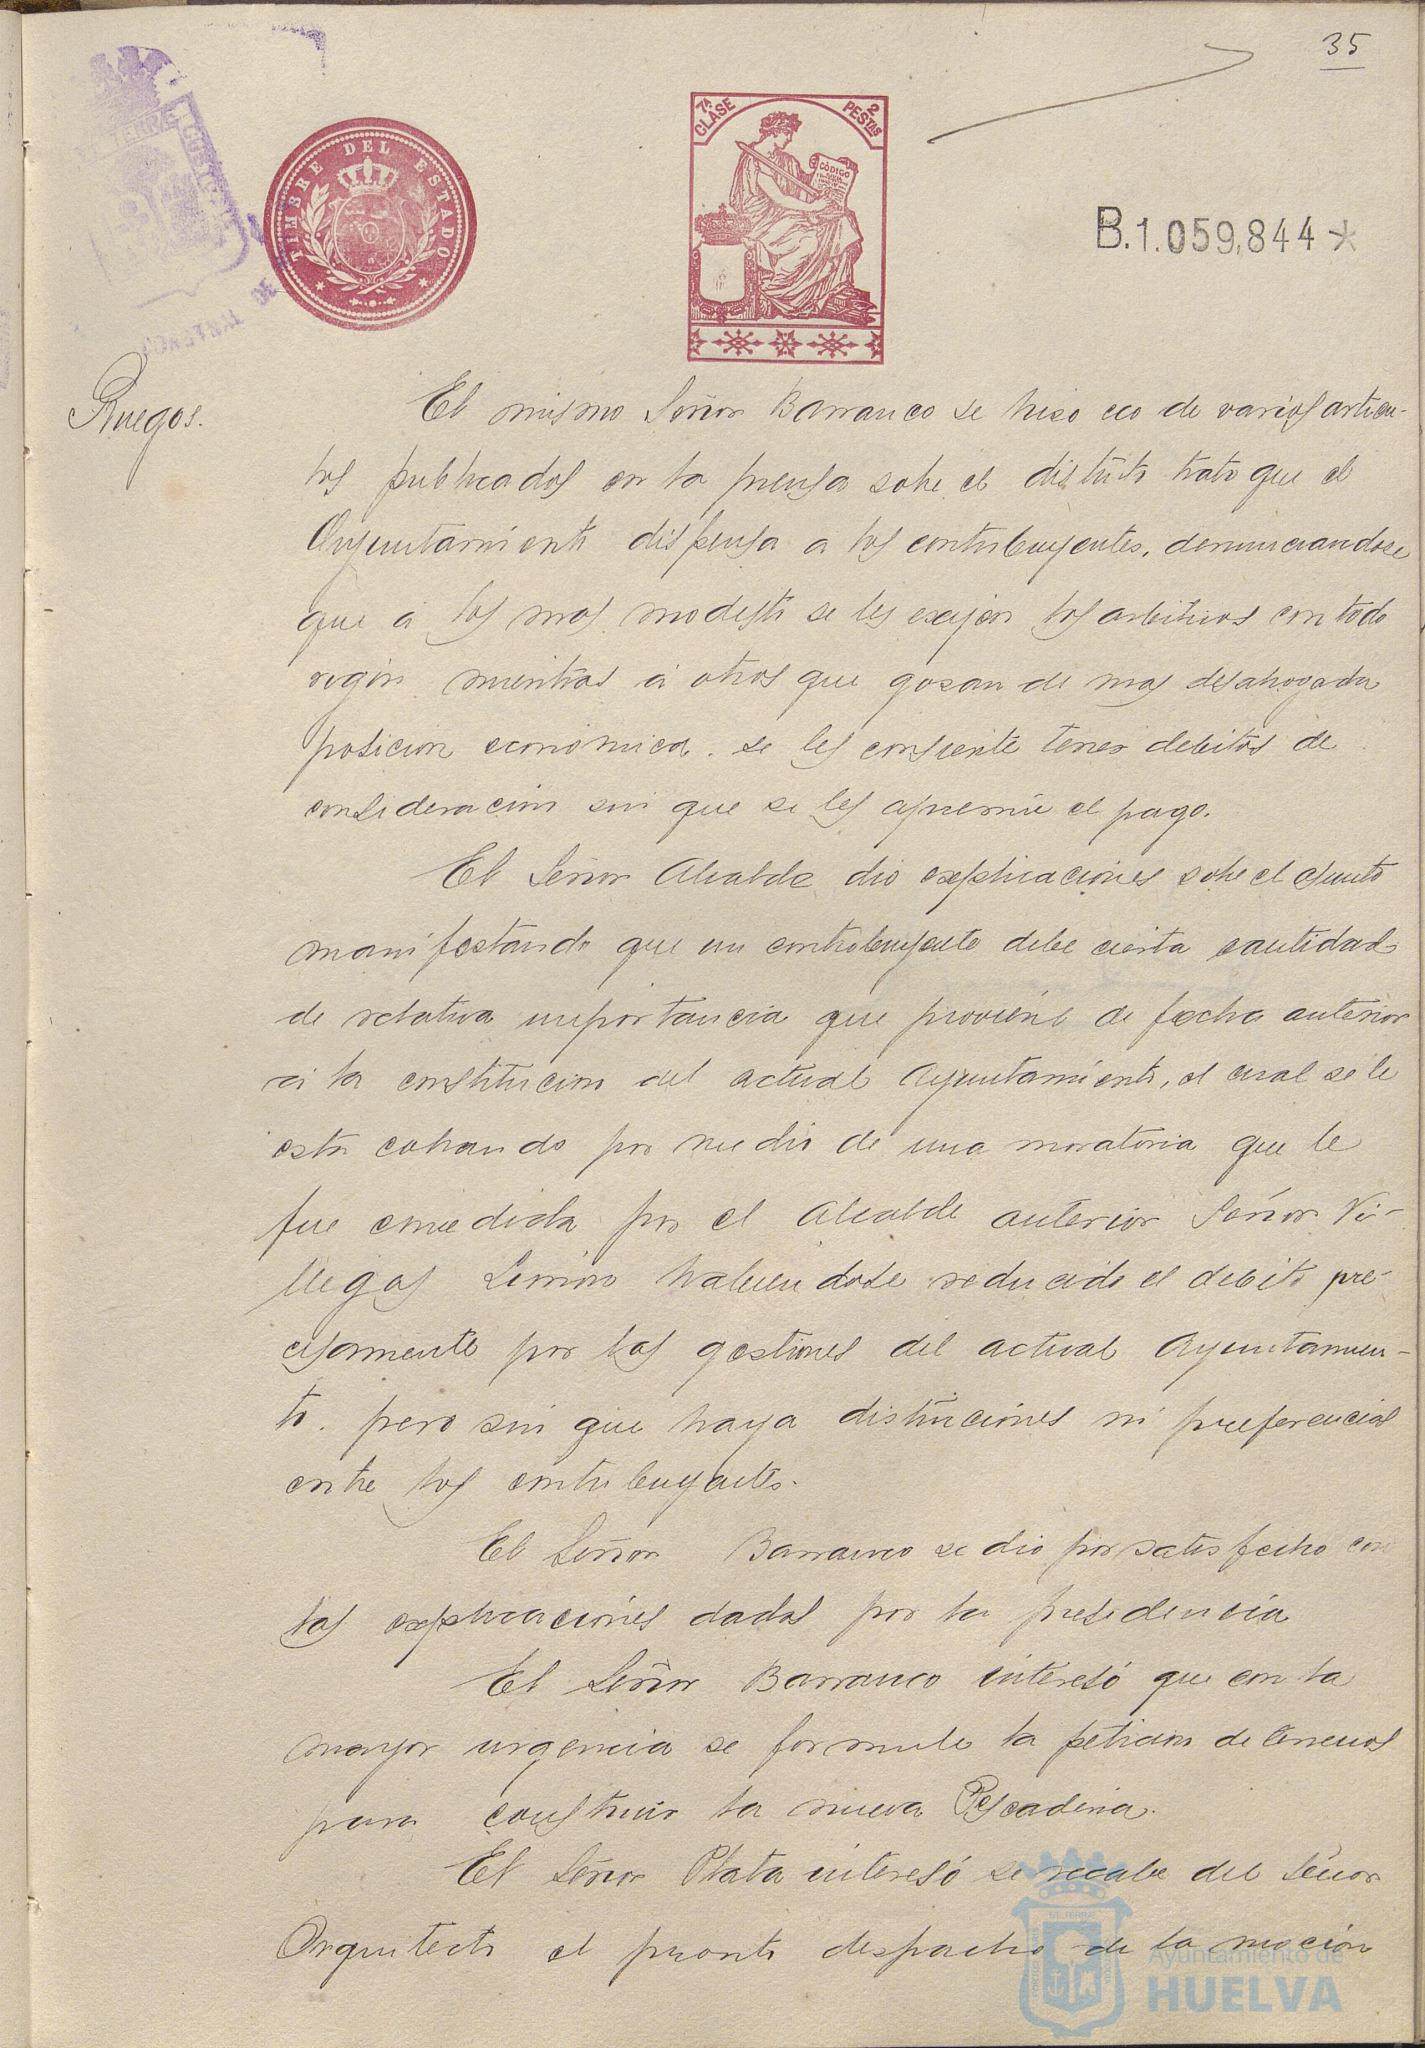 35
TIMBRE DEL ESTADO
7ª CLASE
2 PESTAS
CÓDIGO
B.1.059,844*
Ruegos.
El mismo Señor Barranco se hiso eco de varios articu-
los publicados en la prensa sobre el distinto trato que el
Ayuntamiento dispensa a los contribuyentes, denunciandose
que á los mas modesto se les exijen los arbitrios con todo
rigor mientras á otros que gosan de mas desahogada
posicion economica se les consiente tener debitos de
consideracion sin que se les apremie el pago.
El Señor Alcalde dio explicaciones sobre el asunto
manifestando que un contribuyente debe cierta cantidad
de relativa importancia que proviene de fecha anterior
á la constitucion del actual Ayuntamiento, el cual se le
esta cobrando por medio de una moratoria que le
fue concedida por el Alcalde anterior Señor Vi-
llegas Limón habiendose reducido el debito pre-
cisamente por las gestiones del actual Ayuntamien-
to. pero sin que haya distinciones ni preferencias
entre los contribuyentes.
El Señor Barranco se dio por satisfecho con
las explicaciones dadas por la presidencia
El Señor Barranco interesó que con la
mayor urgencia se formule la peticion de terrenos
para construir la nueva Pescaderia.
El Señor Plata interesó se recabe del Señor
Arquitecto el pronto despacho de la moción
Ayuntamiento de
HUELVA